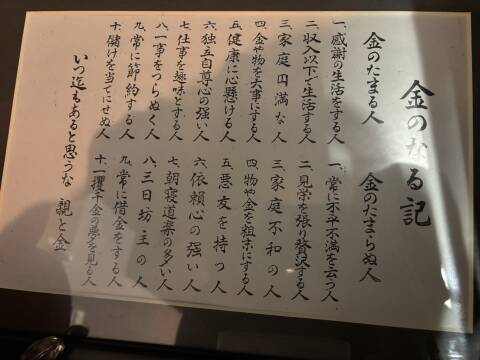 金のなる記
金のたまる人
一、感謝の生活をする人
二、収入以下で生活する人
三、家庭円満な人
四、金や物を大事にする人
五、健康に心懸ける人
六、独立自尊心の強い人
七、仕事を趣味とする人
八、一事をつらぬく人
九、常に節約する人
十、儲けを当てにせぬ人
金のたまらぬ人
一、常に不平不満を云う人
二、見栄を張り贅沢する人
三、家庭不和の人
四、物や金を粗末にする人
五、悪友を持つ人
六、依頼心の強い人
七、朝寝道楽の多い人
八、三日坊主の人
九、常に借金をする人
十、一攫千金の夢を見る人
いつ迄もあると思うな 親と金